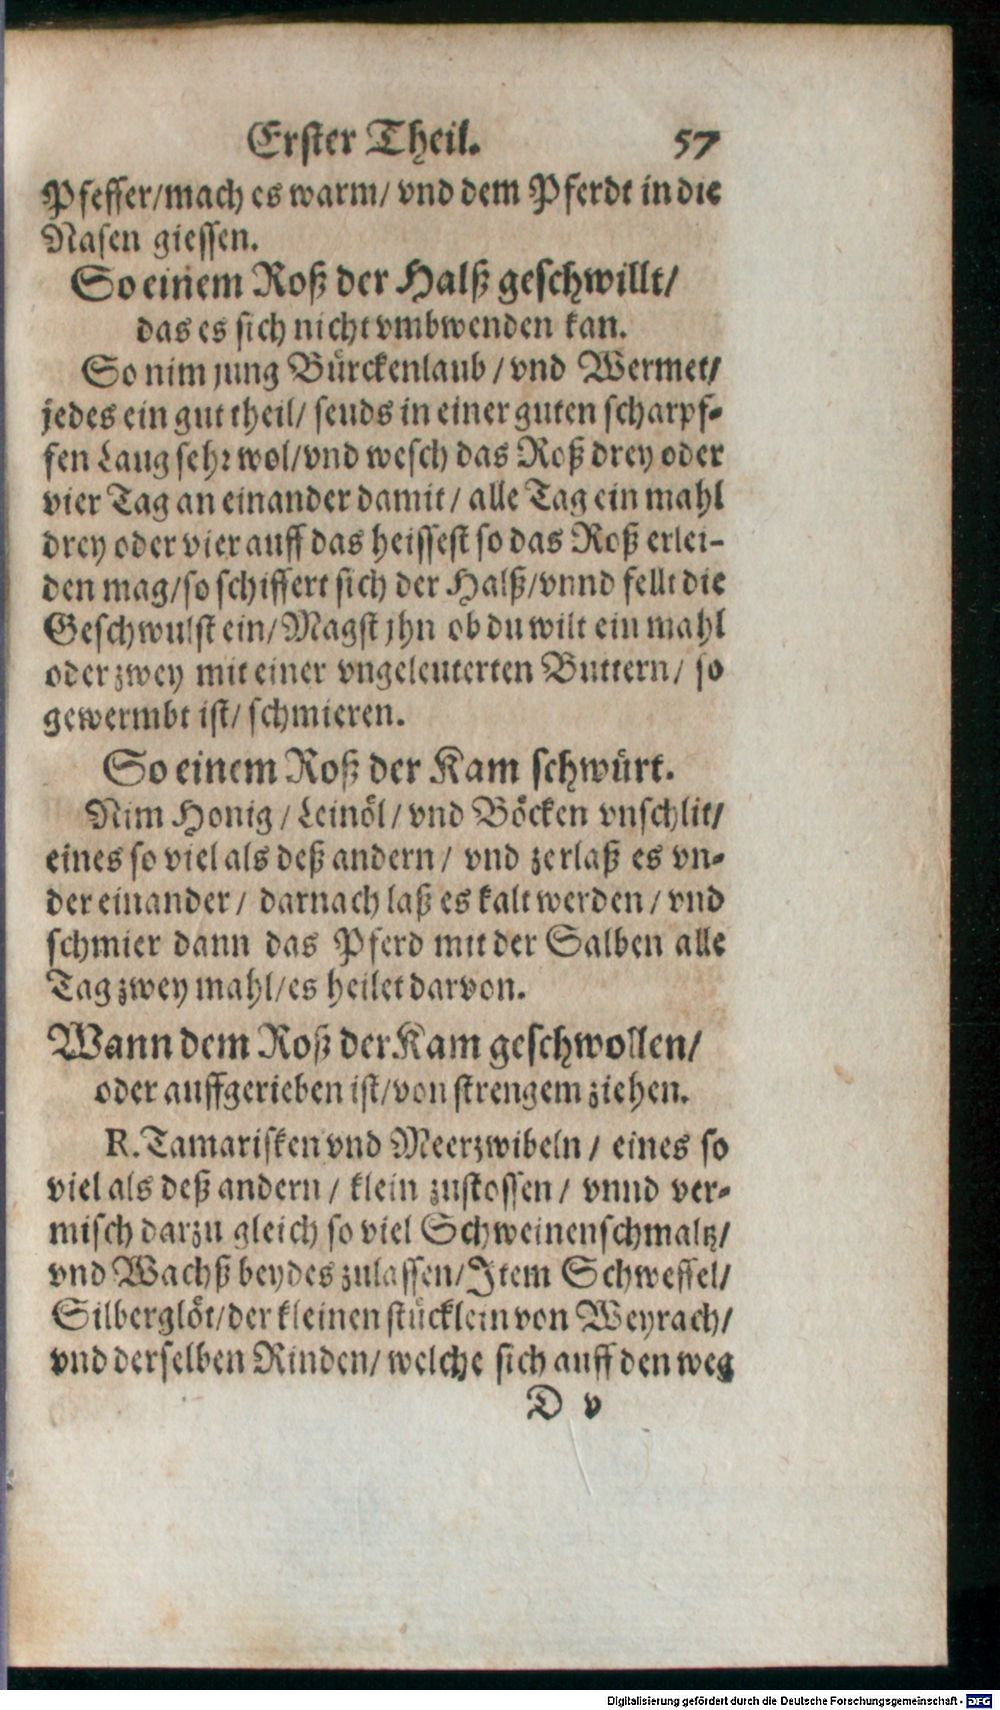 Erster Theil. 57
Pfeffer/mach es warm/ vnd dem Pferdt in die
Nasen giessen.
So einem Roß der Halß geschwillt/
das es sich nicht vmbwenden kan.
So nim jung Bürckenlaub/vnd Wermet/
jedes ein gut theil/ seuds in einer guten scharpf-
fen Laug sehr wol/vnd wesch das Roß drey oder
vier Tag an einander damit/ alle Tag ein mahl
drey oder vier auff das heissest so das Roß erlei-
den mag/so schiffert sich der Halß/vnnd fellt die
Geschwulst ein/Magst jhn ob du wilt ein mahl
oder zwey mit einer vngeleuterten Buttern/ so
gewermbt ist/ schmieren.
So einem Roß der Kam schwürt.
Nim Honig/Leinöl/vnd Böcken vnschlit/
eines so viel als deß andern/ vnd zerlaß es vn-
der einander/ darnach laß es kalt werden/vnd
schmier dann das Pferd mit der Salben alle
Tag zwey mahl/es heilet darvon.
Wann dem Roß der Kam geschwollen/
oder auffgerieben ist/von strengem ziehen.
R. Tamarisken vnd Meerzwibeln/ eines so
viel als deß andern/ klein zustossen/ vnnd ver-
misch darzu gleich so viel Schweinenschmaltz/
vnd Wachß beydes zulassen/Item Schweffel/
Silberglöt/der kleinen stücklein von Weyrach/
vnd derselben Rinden/ welche sich auff den weg
D v
Digitalisierung gefördert durch die Deutsche Forschungsgemeinschaft - DFG